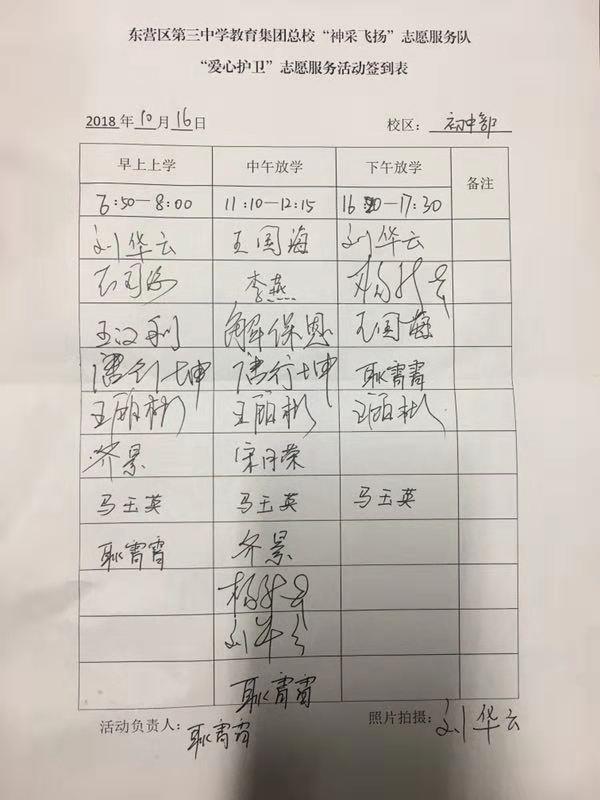 东营区第三中学教育集团总校“神采飞扬”志愿服务队
“爱心护卫”志愿服务活动签到表
2018 年 10 月 16 日 校区： 初中部
早上上学 中午放学 下午放学 备注
6:50—8:00 11:10—12:15 16 —17:30
刘华云 王国海 刘华云
王国海 李燕
王汉利 解保恩 王国海
潘行坤 潘行坤 耿霄霄
王丽彬 王丽彬 王丽彬
齐景 宋月荣
马玉英 马玉英 马玉英
耿霄霄 齐景
刘华云
耿霄霄
活动负责人：耿霄霄 照片拍摄：刘华云